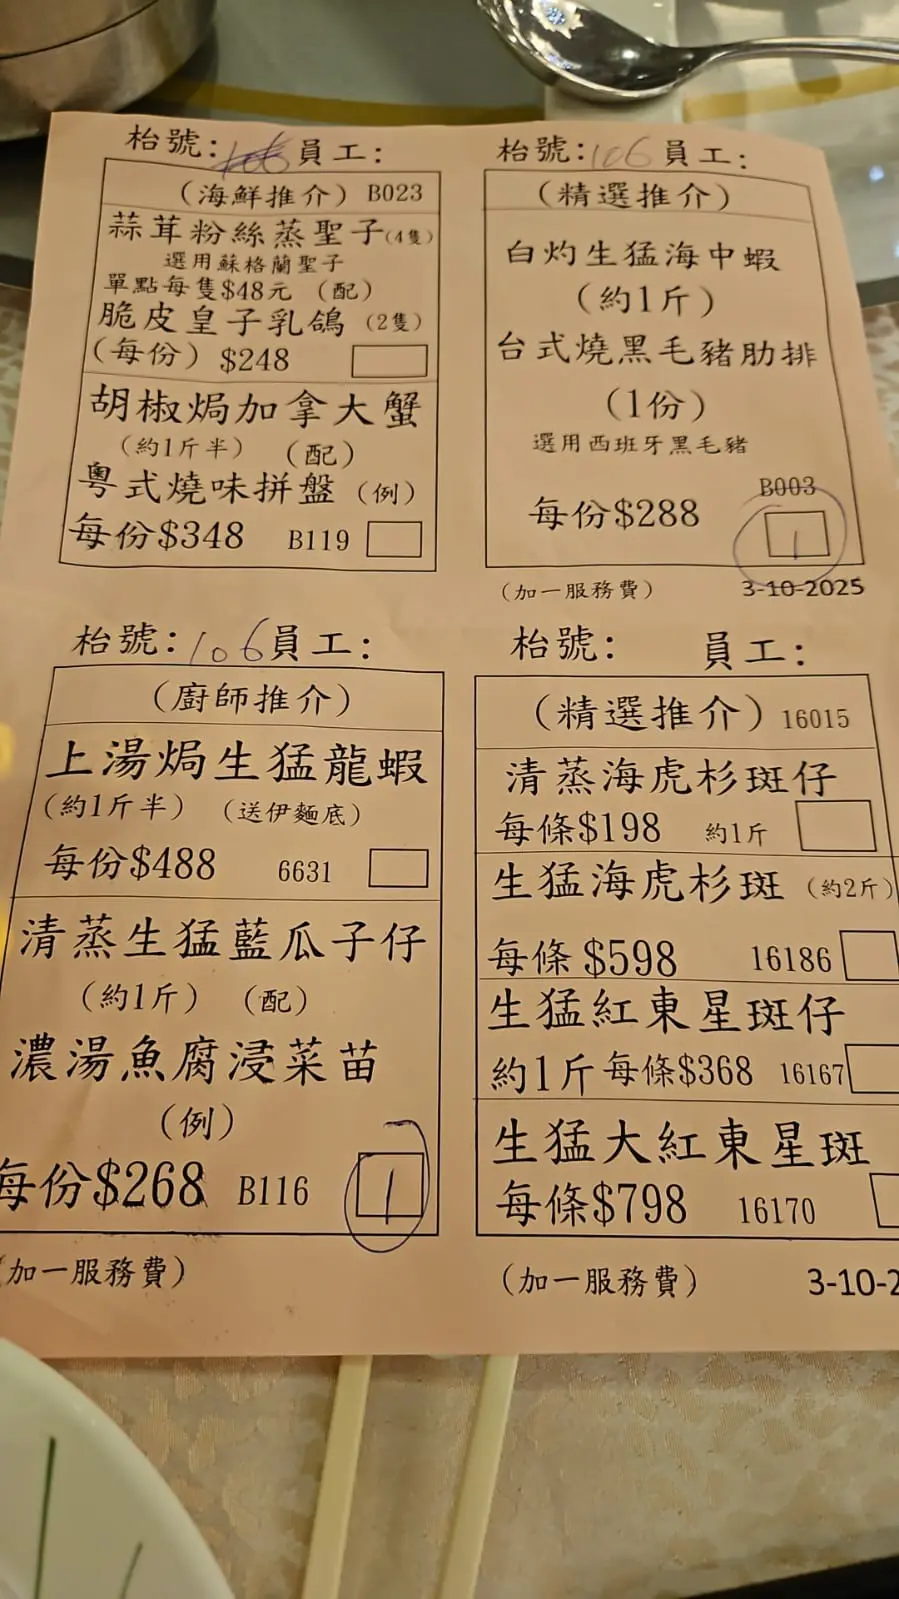 枱號:106員工:
(海鮮推介) B023
蒜茸粉絲蒸聖子(4隻)
選用蘇格蘭聖子
單點每隻$48元 (配)
脆皮皇子乳鴿 (2隻)
(每份) $248
胡椒焗加拿大蟹
(約1斤半) (配)
粵式燒味拼盤 (例)
每份$348 B119
枱號:106員工:
(精選推介)
白灼生猛海中蝦
(約1斤)
台式燒黑毛豬肋排
(1份)
選用西班牙黑毛豬
B003
每份$288
1
(加一服務費) 3-10-2025
枱號:106員工:
(廚師推介)
上湯焗生猛龍蝦
(約1斤半) (送伊麵底)
每份$488 6631
清蒸生猛藍瓜子仔
(約1斤) (配)
濃湯魚腐浸菜苗
(例)
每份$268 B116 1
(加一服務費)
枱號: 員工:
(精選推介) 16015
清蒸海虎杉斑仔
每條$198 約1斤
生猛海虎杉斑 (約2斤)
每條$598 16186
生猛紅東星斑仔
約1斤每條$368 16167
生猛大紅東星斑
每條$798 16170
(加一服務費) 3-10-2